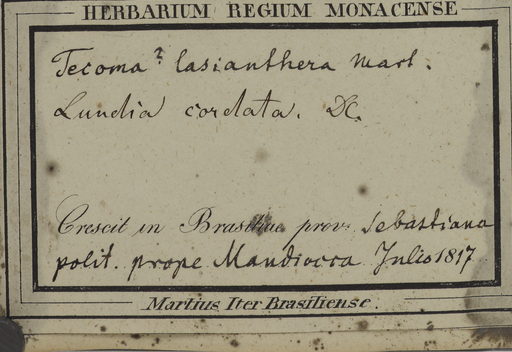 HERBARIUM REGIUM MONACENSE
Tecoma? lasianthera Mart.
Lundia cordata. DC.
Crescit in Brasiliae prov. Sebastiana
polit. prope Mandiocca Julio 1817
Martius Iter Brasiliense.